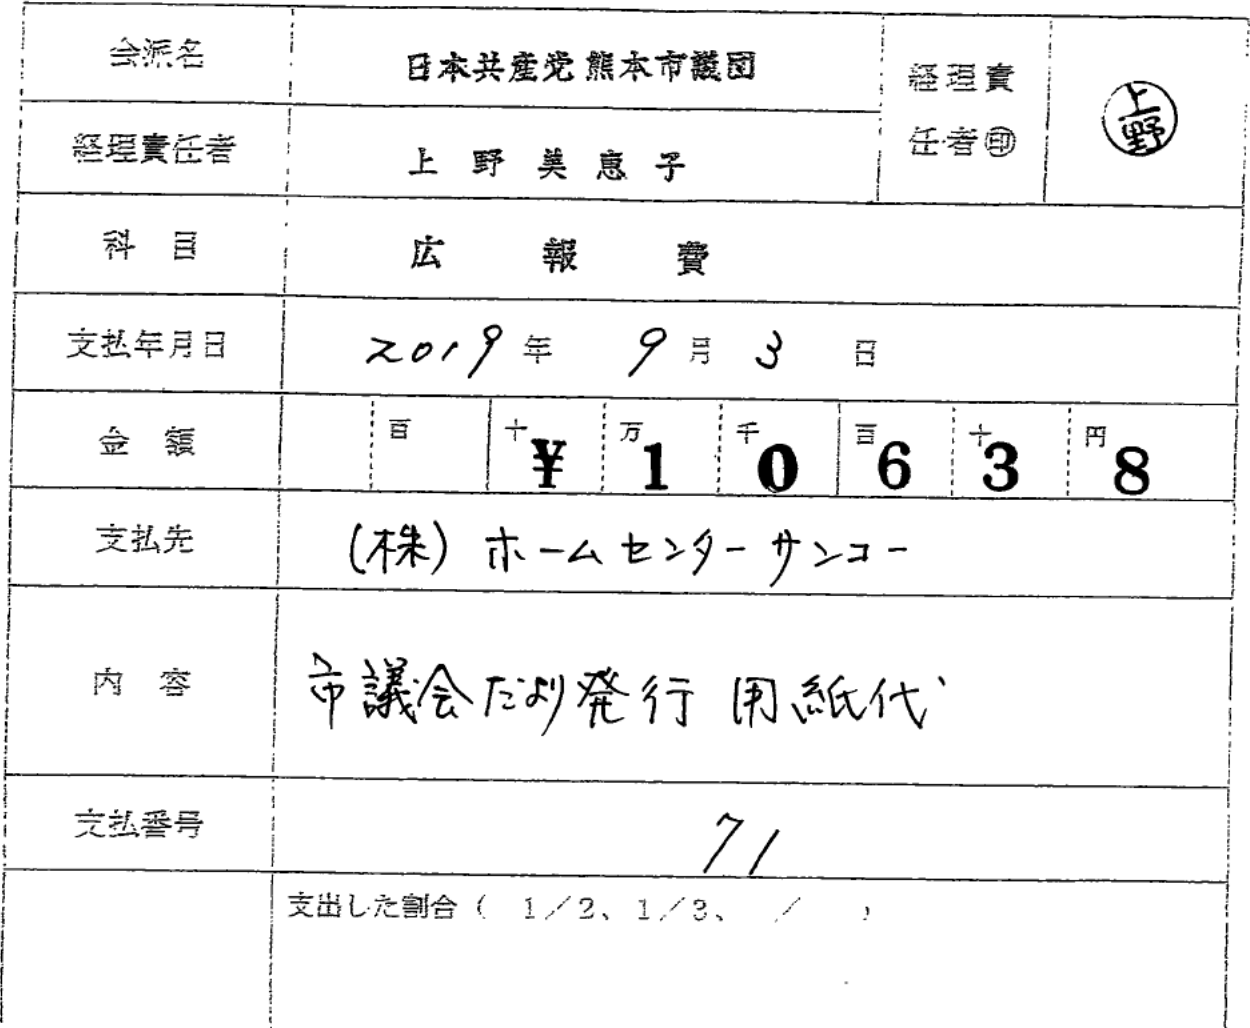 会派名 日本共産党熊本市議団 経理責任者㊞ 上野
経理責任者 上野美恵子
科目 広報費
支払年月日 2019年 9月 3日
金額 百 十 ¥ 万 1 千 0 百 6 十 3 円 8
支払先 (株) ホームセンターサンコー
内容 市議会だより発行 用紙代
支払番号 71
支出した割合( 1/2、1/3、 / )